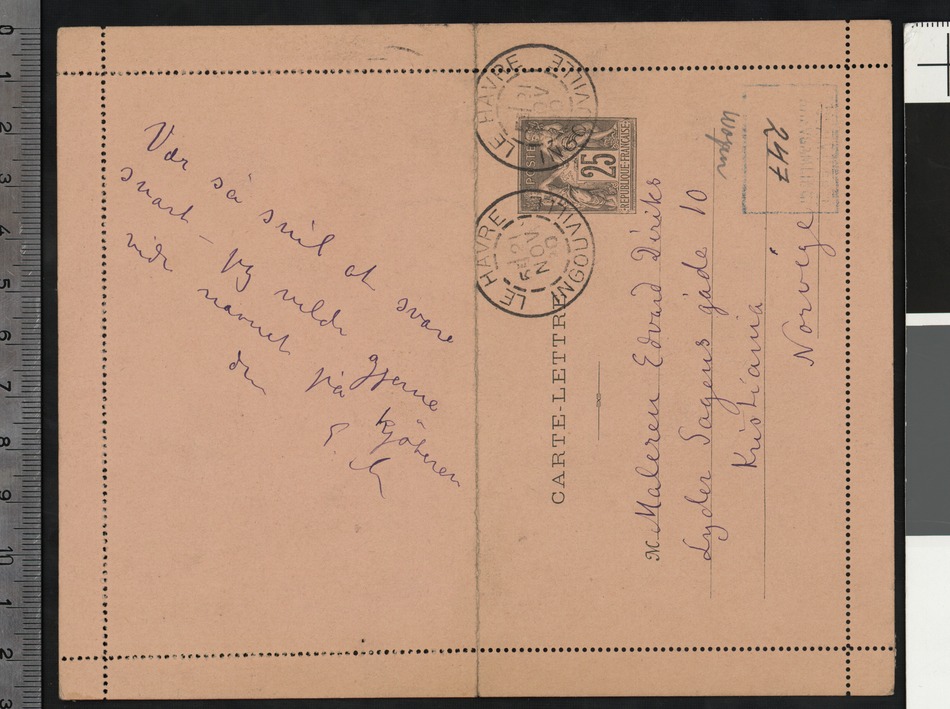 Vær så snil at svare
snart – jeg vilde gjerne
vide navnet på kjøberen
din
E. M
CARTE-LETTRE
LE HAVRE
INGOUVILLE
LE HAVRE
INGOUVILLE
12
NOV
90
POSTES
25
RÉPUBLIQUE FRANÇAISE
M Maleren Edvard Diriks
Lyder Sagens gáde 10
Kristiania
Norvège
247